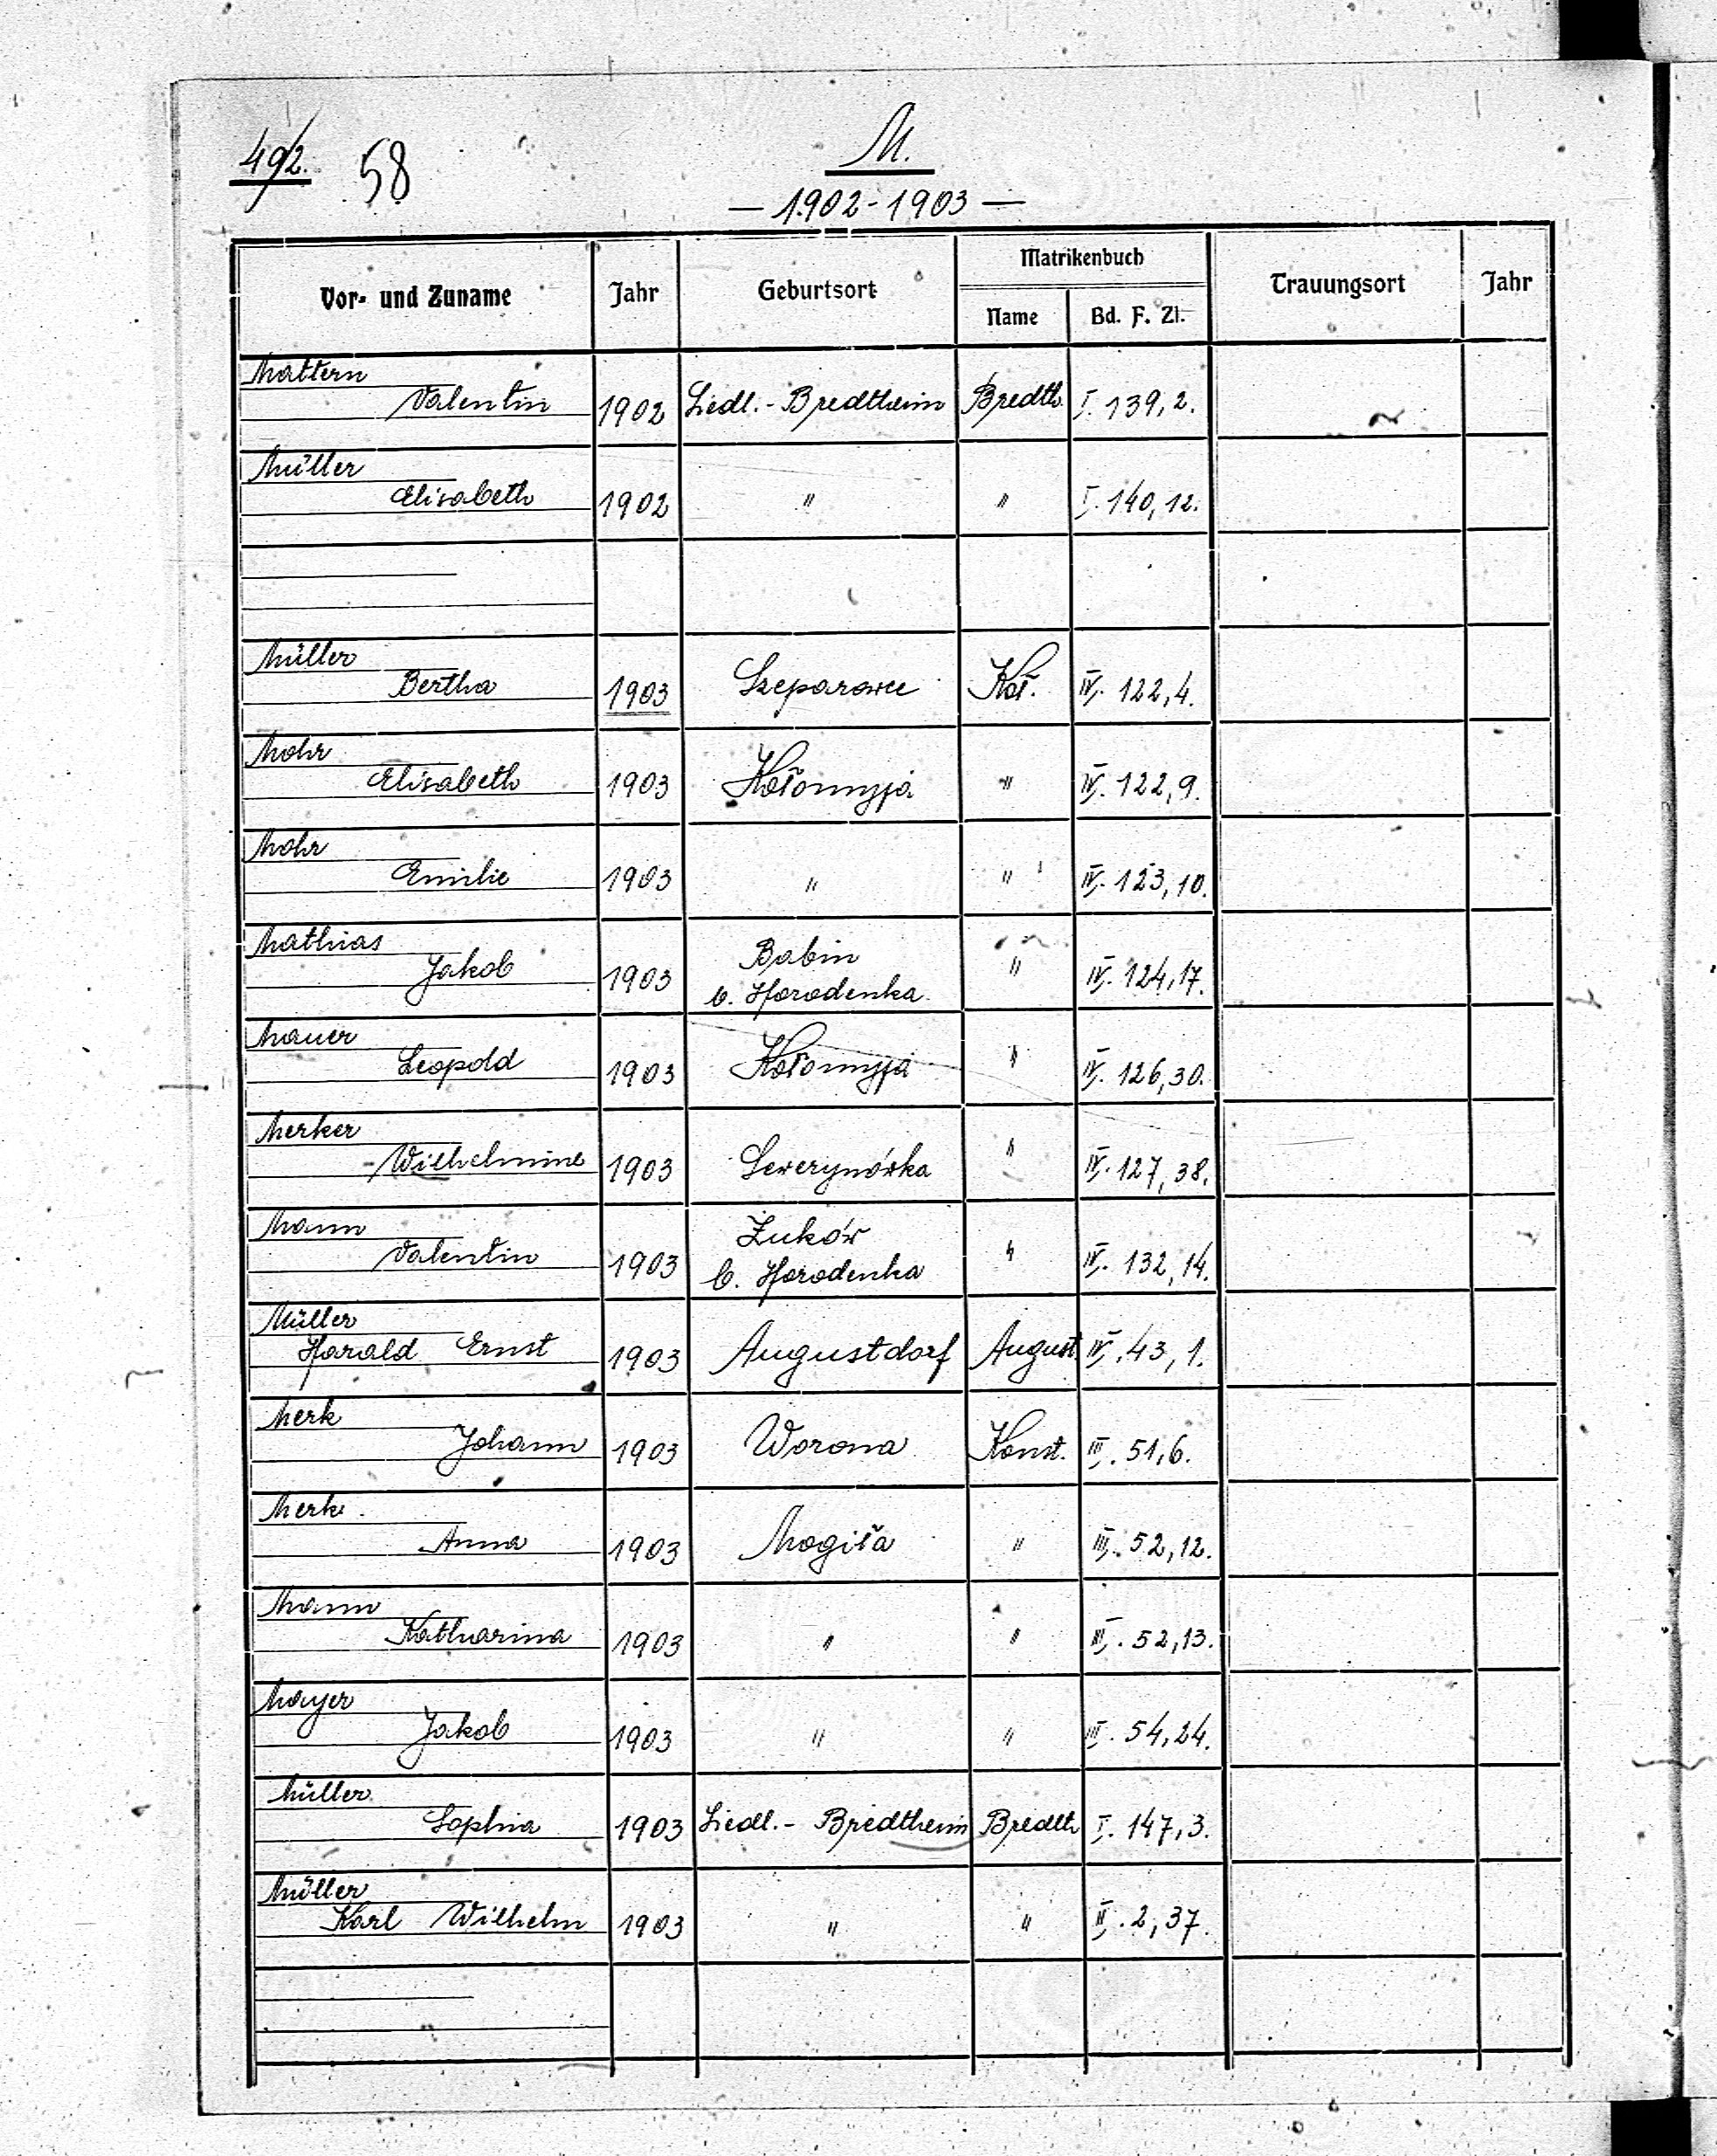 492. 58
M.
— 1902-1903 —
Vor- und Zuname Jahr Geburtsort Matrikenbuch Trauungsort Jahr
Name Bd. F. Zl.
Mattern
Valentin 1902 Siedl.- Bredtheim Bredth. I. 139, 2.
Müller
Elisabeth 1902 " " I. 140, 12.
Müller
Bertha 1903 Szeparowce Koł. IV. 122, 4.
Mohr
Elisabeth 1903 Kołomyja " IV. 122, 9.
Mohr
Emilie 1903 " " IV. 123, 10.
Mathias
Jakob 1903 Babin " IV. 124, 17.
b. Horodenka
Mauer
Leopold 1903 Kołomyja " IV. 126, 30.
Merker
Wilhelmine 1903 Sewerynówka " IV. 127, 38.
Mann
Valentin 1903 Żuków " IV. 132, 14.
b. Horodenka
Müller
Harald Ernst 1903 Augustdorf August. IV. 43, 1.
Merk
Johann 1903 Worona Konst. III. 51, 6.
Merk
Anna 1903 Mogiła " III. 52, 12.
Mann
Katharina 1903 " " III. 52, 13.
Mayer
Jakob 1903 " " III. 54, 24.
Müller
Sophia 1903 Siedl.- Bredtheim Bredth I. 147, 3.
Müller
Karl Wilhelm 1903 " " II. 2, 37.